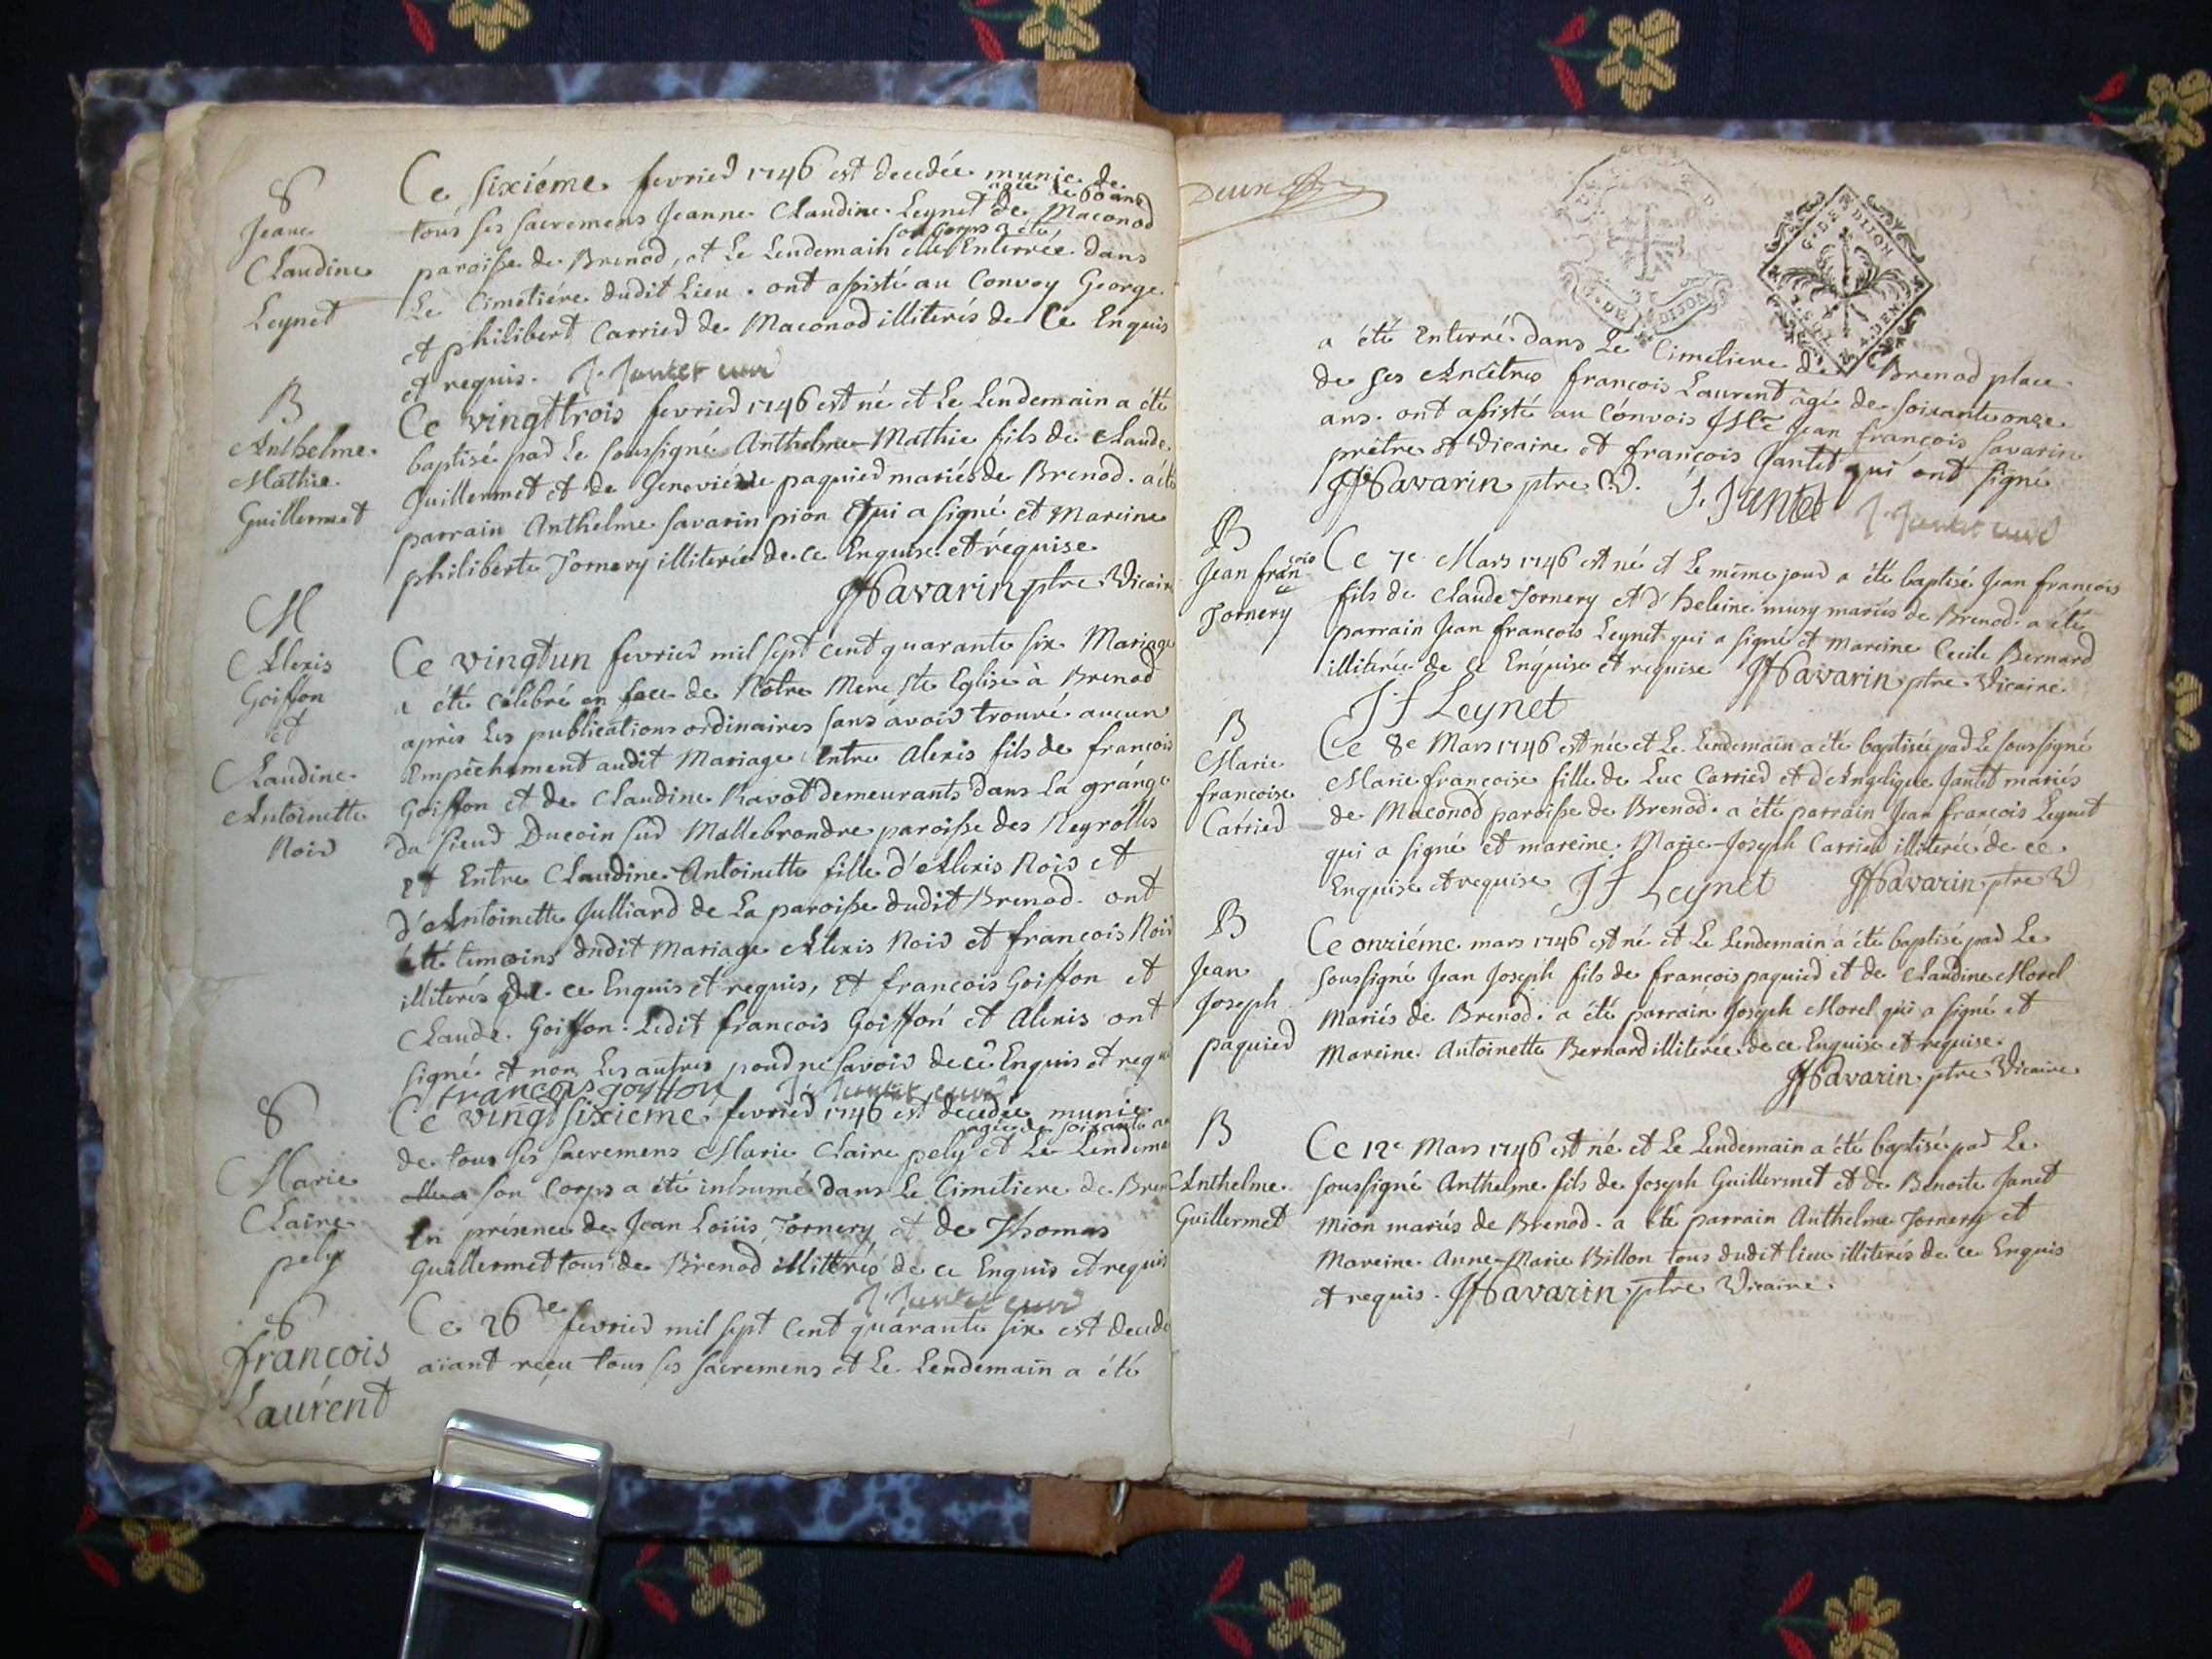 S
Jeane
Claudine
Leynet
Ce sixiéme fevrier 1746 est decedée munie de
agée de 60 ans
tous ses sacremens Jeanne Claudine Leynet de Maconod
son corps a été
paroisse de Brenod, et Le Lendemain Enterrée dans
Le Cimetiére dudit Lieu. ont assisté au Convoy George
et philibert Carrier de Maconod illiterés de Ce Enquis
et requis. J. Jantet curé
B
Anthelme
Mathie
Guillermet
Ce vingttrois fevrier 1746 est né et Le Lendemain a été
baptisé par Le soussigné Anthelme-Mathie fils de Claude
Guillermet et de Geneviéve paquier mariés de Brenod. a été
parrain Anthelme Savarin pion qui a signé et Mareine
philiberte Tornery illiterée de ce Enquise et réquise
JfSavarin ptre Vicaire
M
Alexis
Goiffon
et
Claudine
Antoinette
Noir
Ce vingtun fevrier mil sept cent quarante six Mariage
a été célébré en face de Nôtre Mere Ste Eglise à Brenod
après les publications ordinaires sans avoir trouvé aucun
Empêchement audit Mariage Entre Alexis fils de françois
Goiffon et de Claudine Ravot demeurants dans La grange
du sieur Ducoin sur Mallebrondre paroisse des Neyrolles
et Entre Claudine Antoinette fille d'Alexis Noir et
d'Antoinette Julliard de La paroisse dudit Brenod. ont
été temoins dudit Mariage Alexis Noir et francois Noir
illiterés de ce Enquis et requis, et francois Goiffon et
Claude Goiffon. Ledit francois Goiffon et Alexis ont
signé et non Les autres pour ne savoir de ce Enquis et requis
francois goyffon J. Jantet curé
S
Marie
Claire
pely
Ce vingtsixieme fevrier 1746 est decedée munie
agée de soixante an
de tous ses sacremens Marie Claire pely et Le Lendemain
son Corps a été inhumé dans Le Cimetiere de Bren
En présence de Jean Loüis Tornery et de Thomas
Guillermet tous de Brenod illitérés de ce Enquis et requis
J. Jantet curé
S
françois
Laurent
Ce 26e fevrier mil sept cent quarante six est decedé
aiant reçu tous ses sacremens et Le Lendemain a été
Deux
G. DE DIJON
G. DE DIJON
a été Enterré dans Le Cimetiere de Brenod place
de ses Ancêtres françois Laurent âgé de soixante onze
ans. ont assisté au Cónvois Mre Jean françois Savarin
prêtre et Vicaire et françois Jantet qui ont signé
JfSavarin ptre V. f. Jantet J. Jantet curé
B
Jean françois
Tornery
Ce 7e Mars 1746 est né et Le même jour a été baptisé Jean françois
fils de Claude Tornery et d'heleine musy mariés de Brenod. a été
parrain Jean françois Leynet qui a signé et mareine Cecile Bernard
illiterée de ce Enquise et requise JfSavarin ptre Vicaire
Jf Leynet
B
Marie
françoise
Carrier
Ce 8e Mars 1746 est née et Le Lendemain a été baptisée par Le soussigné
Marie françoise fille de Luc Carrier et d'Angelique Jantet mariés
de Maconod paroisse de Brenod. a été parrain Jean françois Leynet
qui a signé et mareine Marie-Joseph Carrier illiterée de ce
Enquise et requise Jf Leynet JfSavarin ptre V
B
Jean
Joseph
paquier
Ce onziéme mars 1746 est né et Le Lendemain a été baptisé par Le
soussigné Jean Joseph fils de françois paquier et de Claudine Morel
Mariés de Brenod. a été parrain Joseph Morel qui a signé et
Mareine Antoinette Bernard illiterée de ce Enquise et requise.
JfSavarin ptre Vicaire
B
Anthelme
Guillermet
Ce 12e Mars 1746 est né et Le Lendemain a été baptisé par Le
soussigné Anthelme fils de Joseph Guillermet et de Benoite Janet
Mion mariés de Brenod. a été parrain Anthelme Tornery et
Mareine Anne-Marie Billon tous dudit lieu illiterés de ce Enquis
et requis. JfSavarin ptre Vicaire.